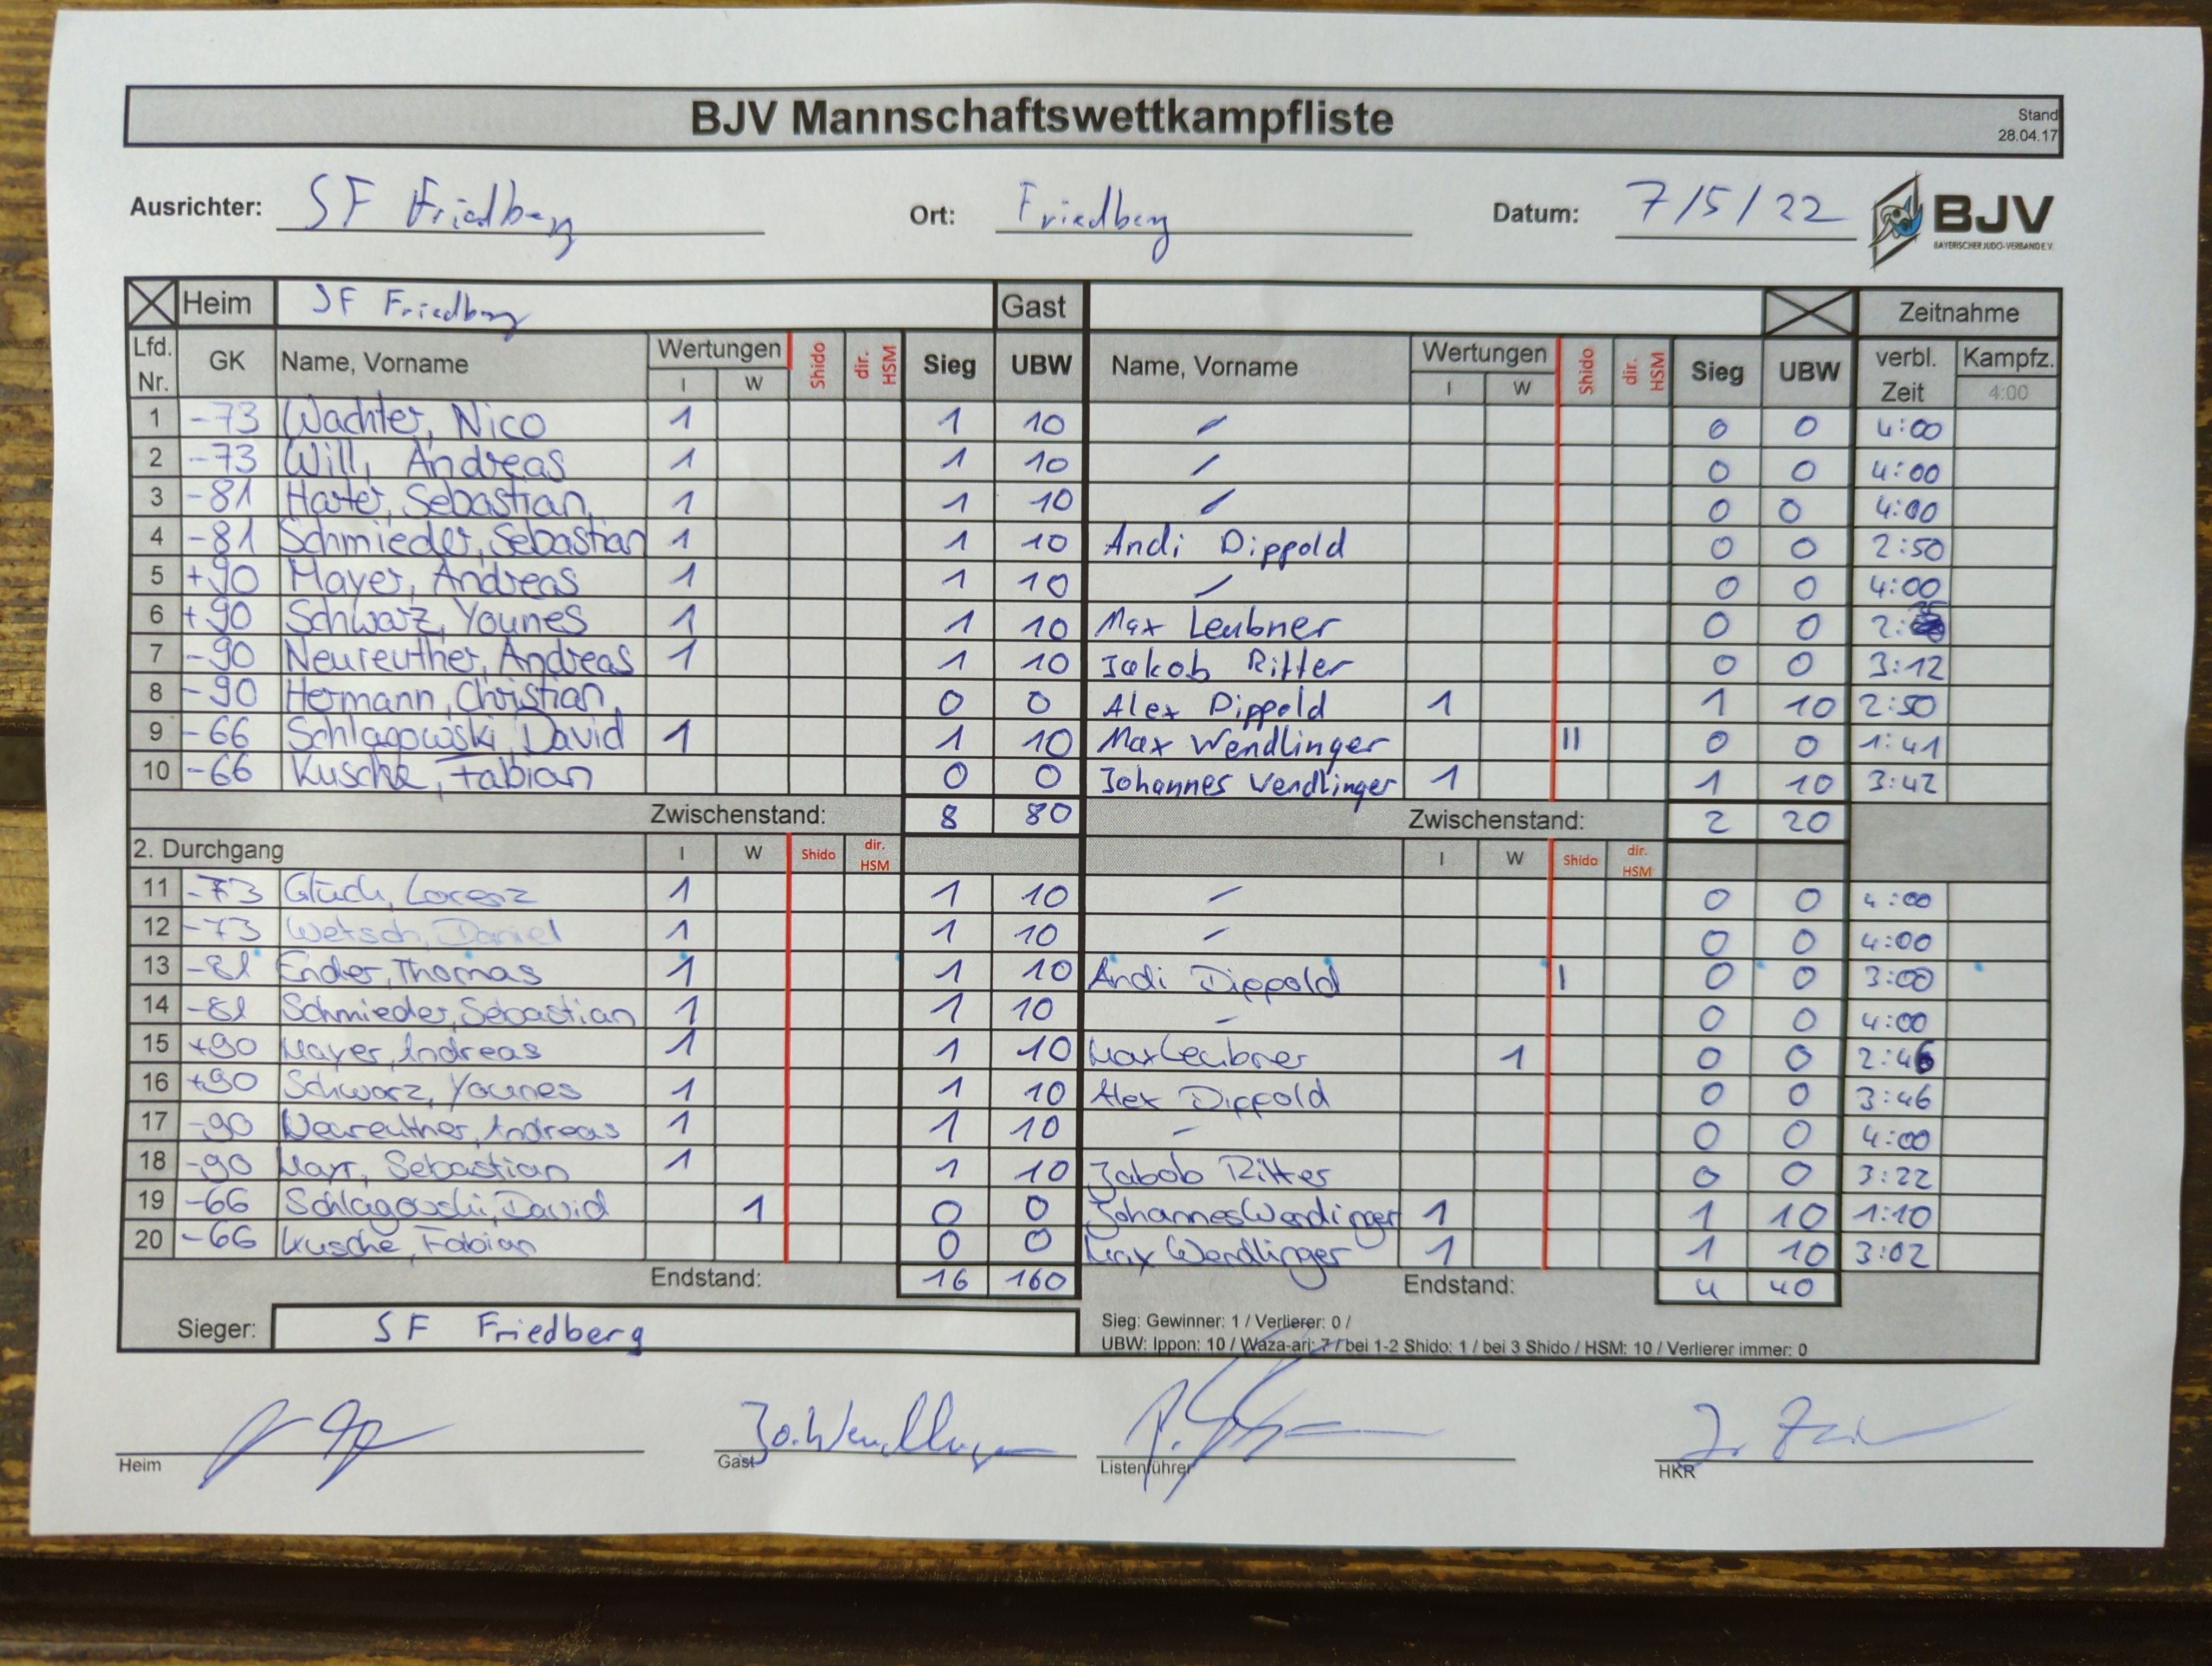 BJV Mannschaftswettkampfliste
Stand
28.04.17
Ausrichter: SF Friedberg Ort: Friedberg Datum: 7/5/22
BJV
BAYERISCHER JUDO-VERBAND E.V.
Heim SF Friedberg Gast Zeitnahme
Lfd. Nr. GK Name, Vorname Wertungen I W Shido dir. HSM Sieg UBW Name, Vorname Wertungen I W Shido dir. HSM Sieg UBW verbl. Zeit Kampfz. 4:00
1 -73 Wachter, Nico 1 1 10 / 0 0 4:00
2 -73 Will, Andreas 1 1 10 / 0 0 4:00
3 -81 Harter, Sebastian 1 1 10 / 0 0 4:00
4 -81 Schmieder, Sebastian 1 1 10 Andi Dippold 0 0 2:50
5 +90 Mayer, Andreas 1 1 10 / 0 0 4:00
6 +90 Schwarz, Younes 1 1 10 Max Leubner 0 0 2:
7 -90 Neureuther, Andreas 1 1 10 Jakob Ritter 0 0 3:12
8 -90 Hermann, Christian 0 0 Alex Dippold 1 1 10 2:50
9 -66 Schlagowski, David 1 1 10 Max Wendlinger II 0 0 1:41
10 -66 Kusche, Fabian 0 0 Johannes Wendlinger 1 1 10 3:42
Zwischenstand: 8 80 Zwischenstand: 2 20
2. Durchgang I W Shido dir. HSM I W Shido dir. HSM
11 -73 Glück, Lorenz 1 1 10 / 0 0 4:00
12 -73 Wetsch, Daniel 1 1 10 / 0 0 4:00
13 -81 Ender, Thomas 1 1 10 Andi Dippold I 0 0 3:00
14 -81 Schmieder, Sebastian 1 1 10 - 0 0 4:00
15 +90 Mayer, Andreas 1 1 10 Max Leubner 1 0 0 2:46
16 +90 Schwarz, Younes 1 1 10 Alex Dippold 0 0 3:46
17 -90 Neureuther, Andreas 1 1 10 - 0 0 4:00
18 -90 Mayr, Sebastian 1 1 10 Jabob Ritter 0 0 3:22
19 -66 Schlagowski, David 1 0 0 Johannes Wendlinger 1 1 10 1:10
20 -66 Kusche, Fabian 0 0 Max Wendlinger 1 1 10 3:02
Endstand: 16 160 Endstand: 4 40
Sieger: SF Friedberg
Sieg: Gewinner: 1 / Verlierer: 0 /
UBW: Ippon: 10 / Waza-ari: 7 / bei 1-2 Shido: 1 / bei 3 Shido / HSM: 10 / Verlierer immer: 0
Jo. Wendlinger
Heim Gast Listenführer HKR